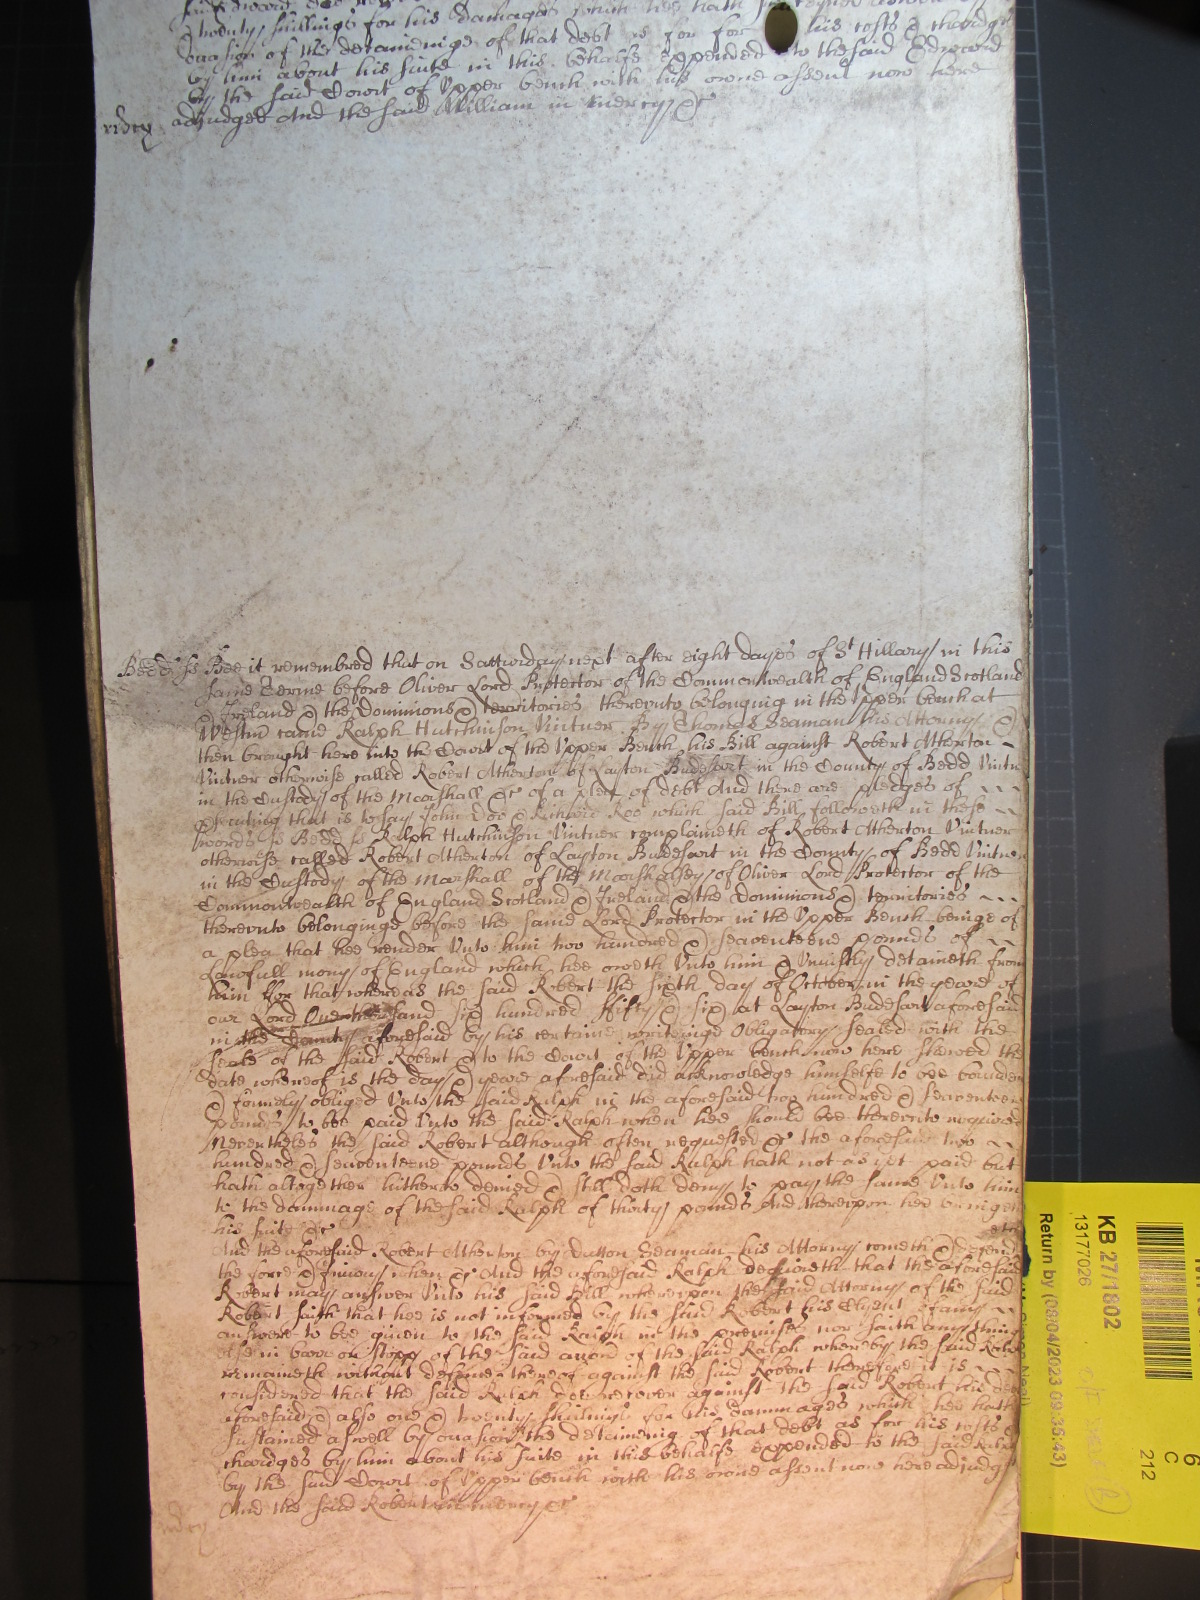 Twenty shillings for his damages which hee hath susteyned aswell by
occasion of the detaininge of that debt as for for his costs & chardges
by him about his suite in this behalfe expended to the said Edward
by the said Court of Upper bench with his owne assent now here
adjudged And the said William in mercy &c
Bedd ss Bee it remembred that on Satturday next after eight dayes of St Hillary in this
same Terme before Oliver Lord Protector of the Commonwealth of England Scotland
& Ireland & the Dominions & territories thereunto belonging in the Upper bench at
Westm came Ralph Hutchinson Vintner By Thomas Seaman his Attorney &
then brought here into the Court of the Upper Bench his Bill against Robert Atherton
Vintner otherwise called Robert Atherton of Layton Budesart in the County of Bedd Vintn
in the Custody of the Marshall &c of a plea of debt And there are pledges of
prosecuting that is to say John Doe & Richard Roo which said Bill followeth in these
words ss Bedd ss Ralph Hutchinson Vintner complaineth of Robert Atherton Vintner
otherwise called Robert Atherton of Layton Budesart in the County of Bedd Vintner
in the Custody of the Marshall of the Marshalsey of Oliver Lord Protector of the
Commonwealth of England Scotland & Ireland & the dominions & territories
thereunto belonginge before the same Lord Protector in the Upper Bench beinge of
a plea that hee render unto him two hundred & seaventeene pounds of
Lawfull mony of England which hee oweth unto him & uniustly detaineth from
him For that whereas the said Robert the sixth day of October in the yeare of
our Lord One thousand six hundred fifty & six at Layton Budesart aforesaid
in the County aforesaid by his certaine writeinge Obligatory sealed with the
seale of the said Robert & to the Court of the Upper bench now here shewed the
date whereof is the day & yeare aforesaid did acknowledge himselfe to bee bounden
& firmely obliged unto the said Ralph in the aforesaid two hundred & seaventeen
pounds to bee paid unto the said Ralph when hee should bee thereunto required
Neverthelesse the said Robert although often requested &c the aforesaid two
hundred & seaventeene pounds unto the said Ralph hath not as yet paid but
hath altogether hitherto denied & still doth deny to pay the same unto him
to the dammage of the said Ralph of thirty pounds And thereupon hee bringeth
his suite &c
And the aforesaid Robert Atherton by Dutton Seaman his Attorney cometh & defend
the force & iniury when &c And the aforesaid Ralph desireth that the aforesaid
Robert may answer unto his said Bill whereupon the said Attorney of the said
Robert saith that hee is not informed by the said Robert his Clyent of any
answere to bee given to the said Ralph in the premises nor saith any thing
else in barr or stopp of the said accon of the said Ralph whereby the said Ralph
remaineth without defence thereof against the said Robert therefore it is
considered that the said Ralph doe recover against the said Robert his debt
aforesaid & also one & twenty shillings for his dammages which hee hath
sustained aswell by occasion of the detaining of that debt as for his costs &
chardges by him about his suite in this behalfe expended to the said Ralph
by the said Court of Upper bench with his owne assent now here adjudg
And the said Robert in mercy &c
KB 27/1802
13177026
Return by (08/04/2023 09:35:43)
6
C
212